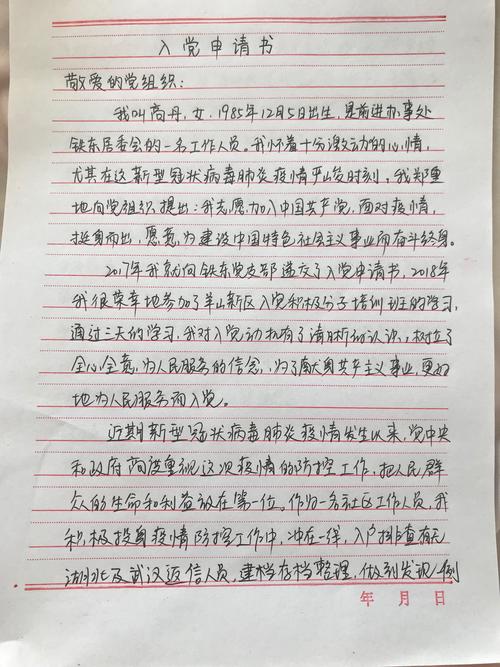 入党申请书
敬爱的党组织:
我叫高丹,女,1985年12月5日出生,是前进办事处
铁东居委会的一名工作人员。我怀着十分激动的心情,
尤其在这新型冠状病毒肺炎疫情严峻时刻,我郑重
地向党组织提出:我志愿加入中国共产党,面对疫情,
挺身而出,愿意为建设中国特色社会主义事业而奋斗终身。
2017年我就向铁东党支部递交了入党申请书,2018年
我很荣幸地参加了羊山新区入党积极分子培训班的学习,
通过三天的学习,我对入党动机有了清晰的认识,树立了
全心全意为人民服务的信念,为了献身共产主义事业,更好
地为人民服务而入党。
近期新型冠状病毒肺炎疫情发生以来,党中央
和政府高度重视这次疫情的防控工作,把人民群
众的生命和利益放在第一位。作为一名社区工作人员,我
积极投身疫情防控工作中,冲在一线,入户排查有无
湖北及武汉返信人员,建档存档整理,做到发现一例
年 月 日